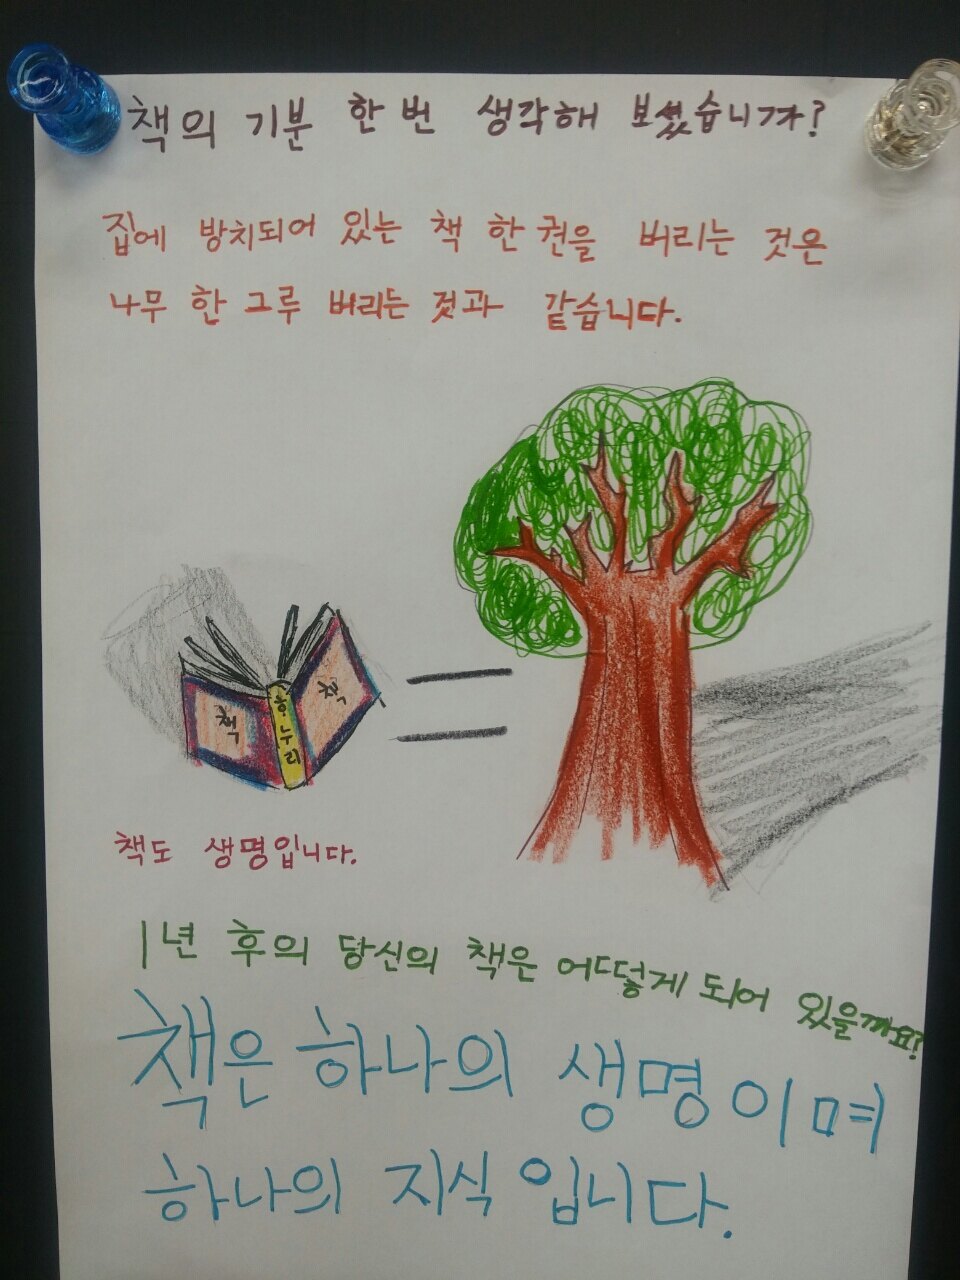 책의 기분 한번 생각해 보셨습니까?
집에 방치되어 있는 책 한 권을 버리는 것은
나무 한 그루 버리는 것과 같습니다.
책
한누리
책
책도 생명입니다.
1년 후의 당신의 책은 어떻게 되어 있을까요?
책은 하나의 생명이며
하나의 지식입니다.